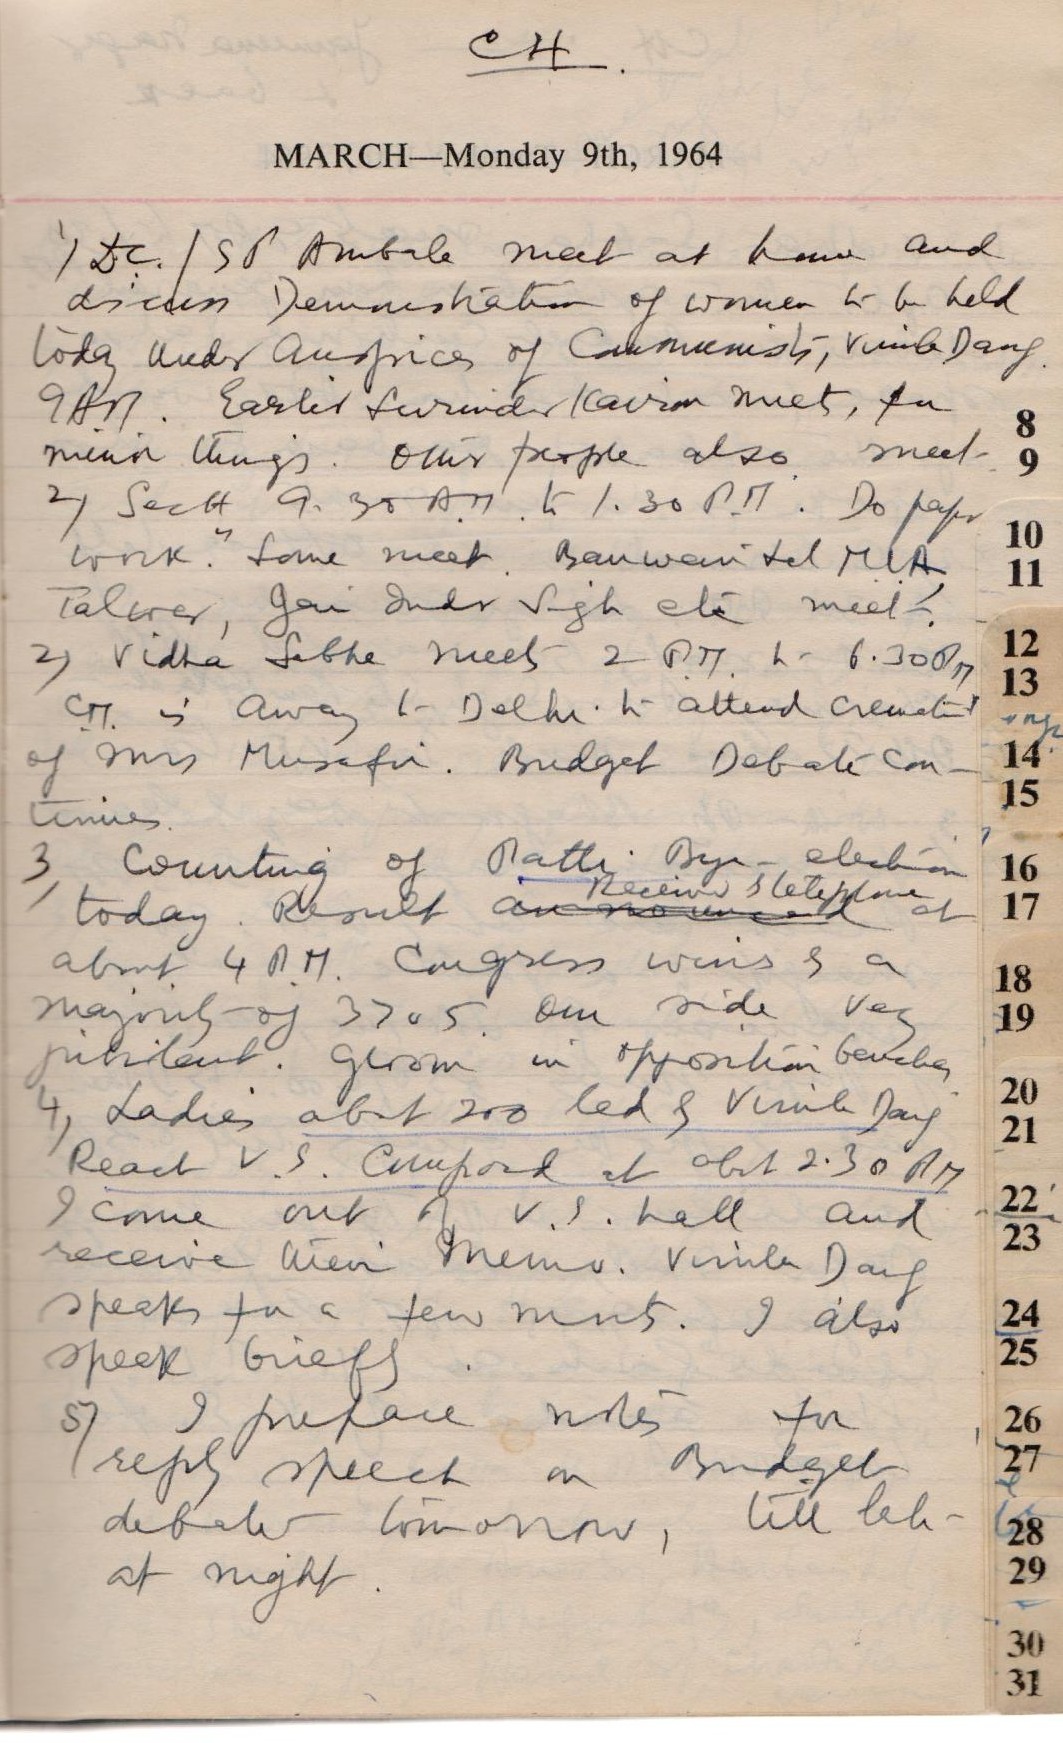 CH.
MARCH—Monday 9th, 1964
1) DC. / SP Ambala meet at home and
discuss Demonstration of women to be held
today under Auspices of Communists, Vimla Dang.
9 AM. Earlier Surinder Kairon meet, for
minor things. Other people also meet
2) Sectt 9.30 A.M. to 1.30 P.M. Do paper
work. Some meet. Banwari Lal MLA,
Talwar, Jai Inder Singh etc meet.
2) Vidha Sabha meets 2 P.M. to 6.30 PM
CM. is away to Delhi to attend cremation
of Mrs Musafir. Budget Debate con-
tinues.
3, Counting of Patti Bye-election
today. Result announced Receive telephone at
about 4 P.M. Congress wins by a
majority of 3705. Our side very
jubilant. Gloom in opposition benches
4, Ladies about 200 led by Vimla Dang
Reach V.S. Compound at about 2.30 PM
I come out of V.S. hall and
receive their Memo. Vimla Dang
speaks for a few mnts. I also
speak briefly.
5) I prepare notes for
reply speech on Budget
debate tomorrow, till late
at night.
8
9
10
11
12
13
14
15
16
17
18
19
20
21
22
23
24
25
26
27
28
29
30
31